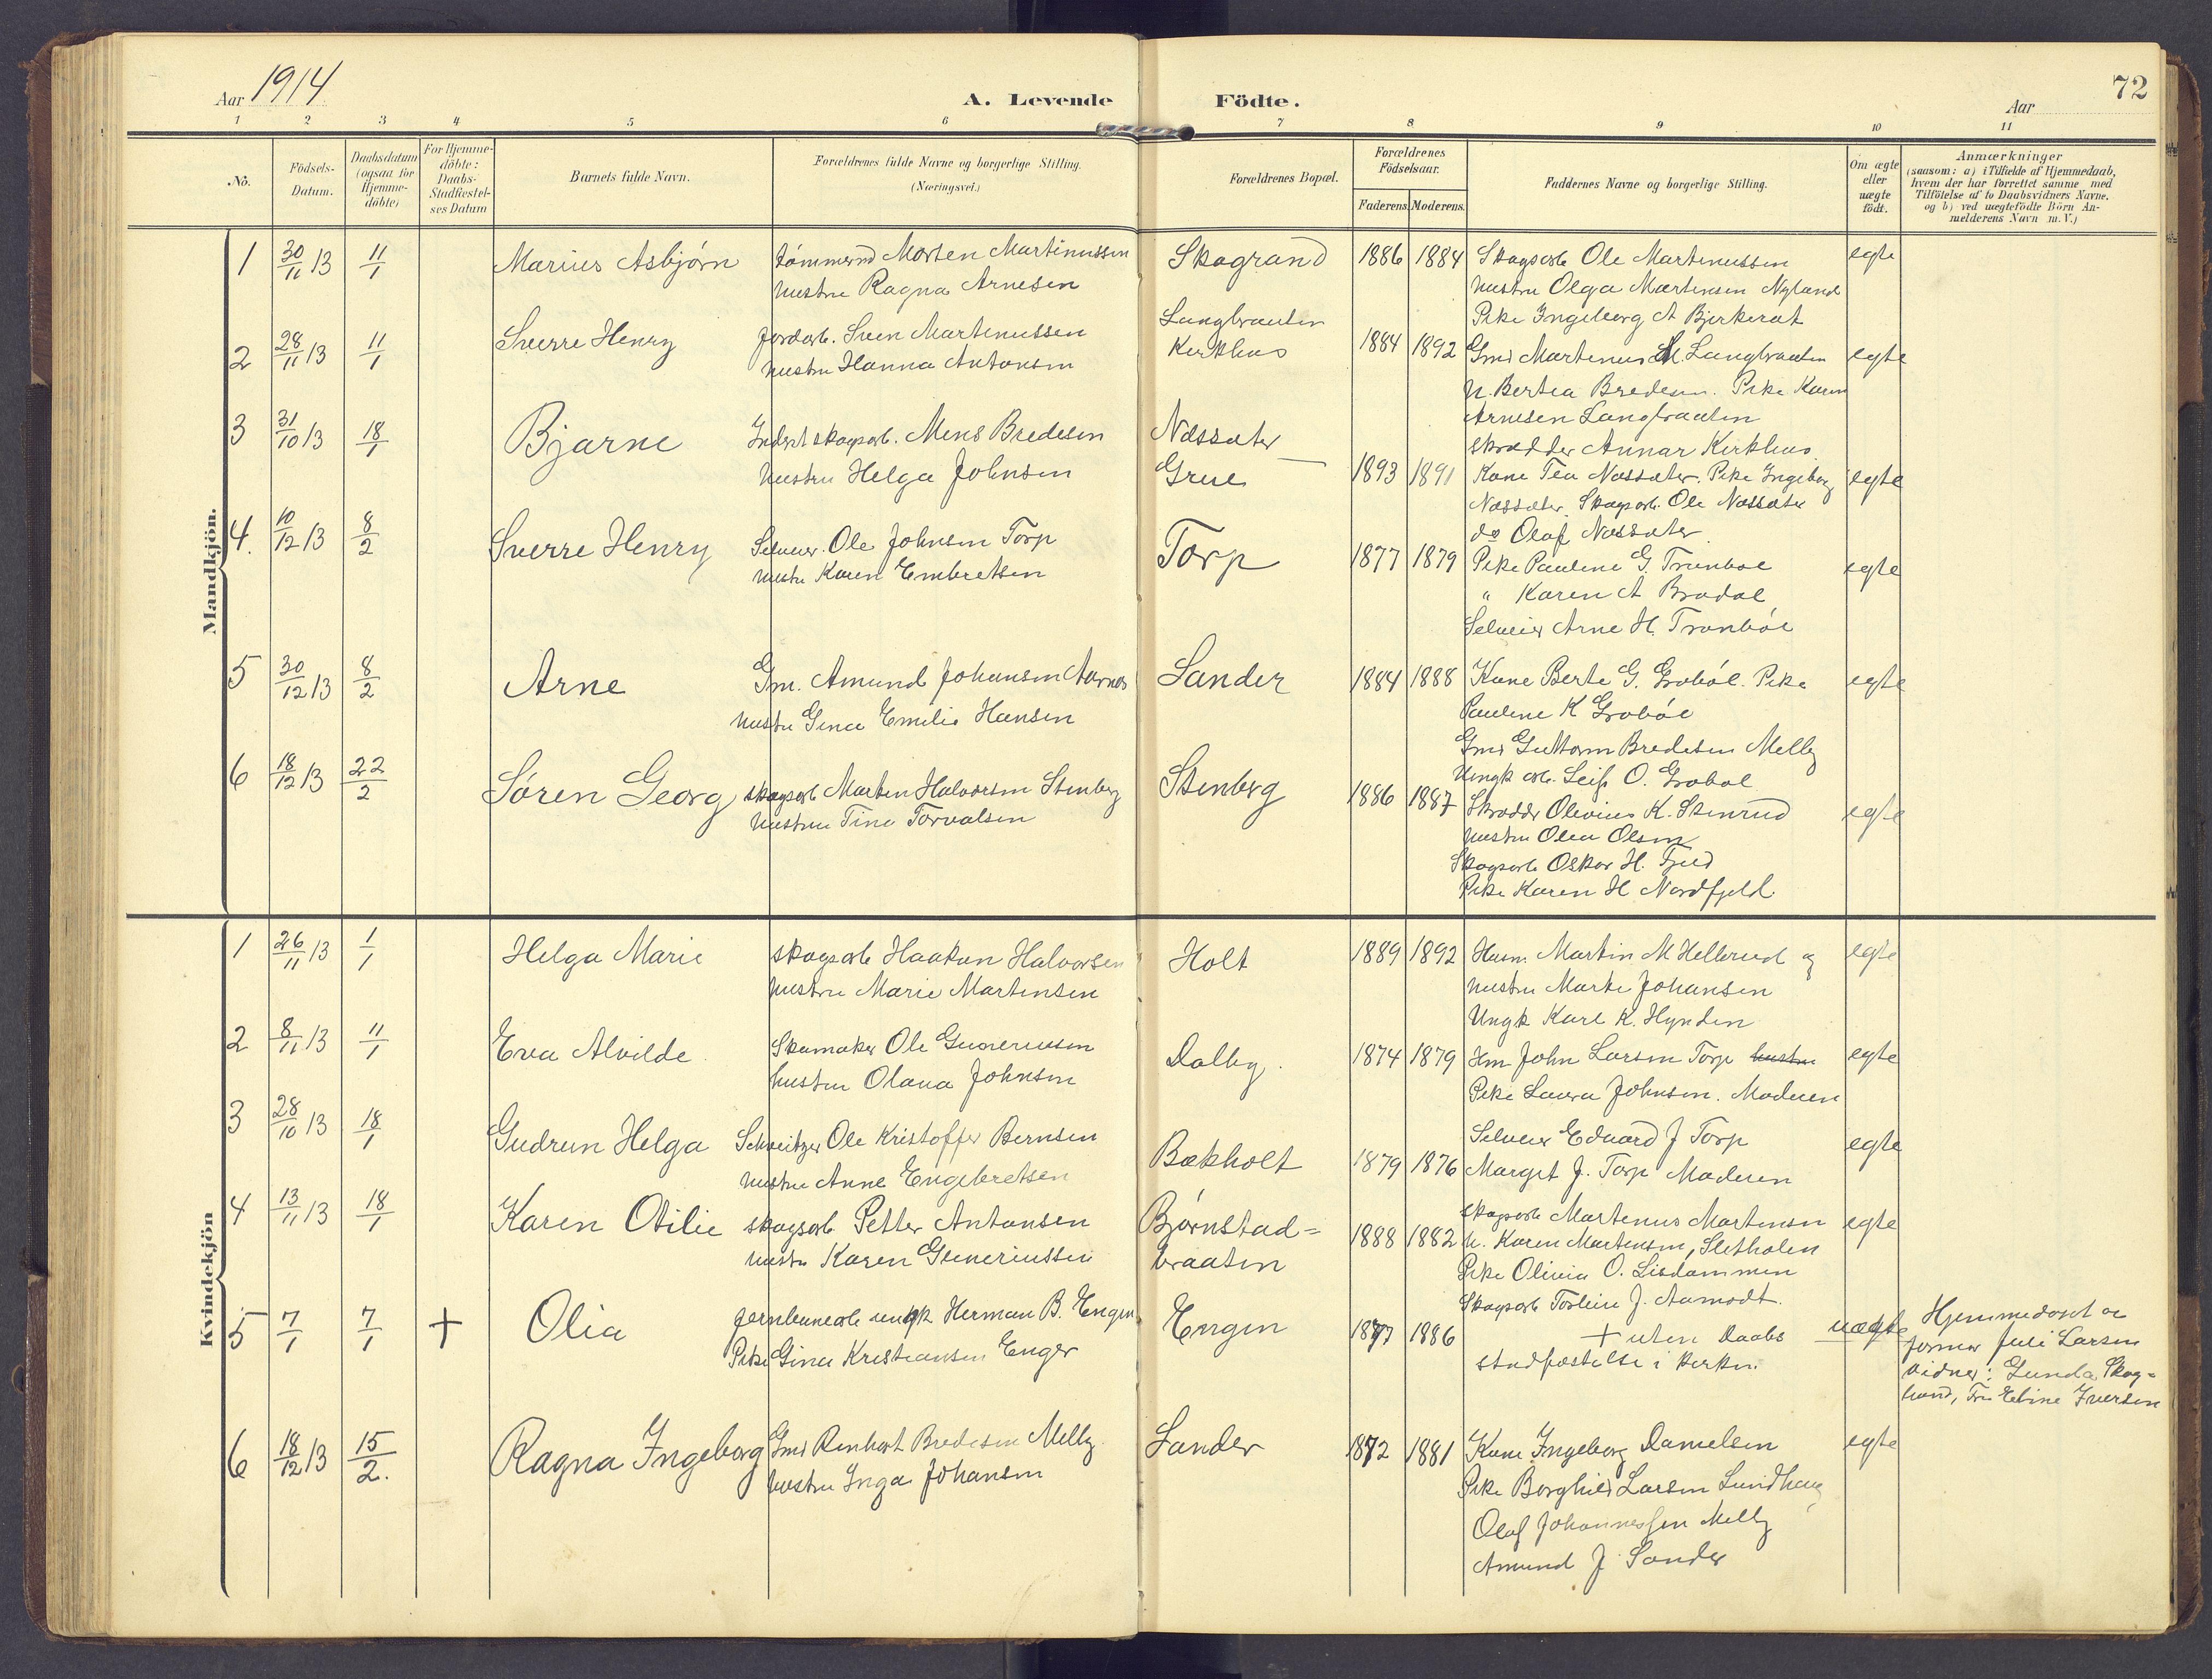 Aar 1914
A. Levende Födte.
Aar
72
1 2 3 4 5 6 7 8 9 10 11
No.
Födsels-Datum.
Daabsdatum (ogsaa for Hjemme-döbte)
For Hjemme-döbte: Daabs-Stadfæstel-ses Datum
Barnets fulde Navn.
Forældrenes fulde Navne og borgerlige Stilling. (Næringsvei.)
Forældrenes Bopæl.
Forældrenes Födselsaar.
Faderens. Moderens.
Faddernes Navne og borgerlige Stilling.
Om ægte eller uægte födt.
Anmærkninger
(saasom: a) i Tilfælde af Hjemmedaab,
hvem der har forrettet samme med
Tilföielse af to Daabsvidners Navne.
og b) ved uægtefödte Börn An-
melderens Navn m. V.)
Mandkjön.
1 30/11 13 11/1 Marius Asbjørn
Morten Martinussen
hustru Ragna Arnesen
Skogrand 1886 1884
Skogsarb Ole Martinussen
hustru Olga Martinsen Nyland
Pike Ingeborg A Bjerkerot
egte
2 28/11 13 11/1 Sverre Henry
Jordarb. Sven Martinussen
hustru Hanna Antonsen
Langbraaten
Kirkhus 1884 1892
Gmd Martinus M. Langbraaten
h. Bertea Bredesen. Pike Karen
Arnesen Langbraaten
skrædder Annar Kirkhus.
egte
3 31/10 13 18/1 Bjarne
Inderst skogsarb. Mens Bredesen
hustru Helga Johnsen
Næssæter
Grue 1893 1891
Kone Tea Næssæter. Pike Ingeborg
Næssæter. Skogsarb. Ole Næssæter
do Olaf Næssæter.
egte
4. 10/12 13 8/2 Sverre Henry
Selveier. Ole Johnsen Torp
hustru Karen Embretsen
Torp 1877 1879
Pike Pauline G. Tronbøl
" Karen A Bradal
Selveier Arne H. Tronbøl
egte
5 30/12 13 8/2 Arne
Gm. Amund Johansen Aarnes
hustru Gina Emilie Hansen
Sander 1884 1888
Kone Berte G. Grobøl. Pike
Pauline K Grobøl
Gmd Guttorm Bredesen Melby
Ungk arb. Leif O. Grobøl
egte
6 18/12 13 22/2 Søren Georg
skogsarb Morten Halvorsen Stenberg
hustru Tina Torvalsen
Stenberg 1886 1887
Skrædder Olevius K. Stenrud
hustru Olea Olsen
Skogsarb Oskar H.
Pike Karen H Nordfjeld.
egte
Kvindekjön
1 26/11 13 1/1 Helga Marie
skogsarb Haakon Halvorsen
hustru Marie Martinsen
Holt 1889 1892
Husm. Martin M Hellerud og
hustru Marte Johansen
Ungk Karl K. Hynden
egte
2 8/11 13 11/1 Eva Alvilde.
Skomaker Ole Guneriusen
hustru Olava Johnsen
Dalby. 1874 1879
Hm John Larsen Torp hustru
Pike Laura Johnsen. Moderen
egte
3 28/10 13 18/1 Gudrun Helga
Schweitzer Ole Kristoffer Bernsen
hustru Anne Engebretsen
Bækholt 1879 1876
Selveier Edvard J Torp
Margit J. Torp Moderen
egte
4 13/11 13 18/1 Karen Otilie
skogsarb Petter Antonsen
hustru Karen Guneriussen
Bjørnstad=
braaten 1888 1882
skogsarb Martinus Martinsen
h. Karen Martinsen, Sletholen
Pike Olivia O. Lisdammen
Skogsarb Torleiv J. Aamodt.
egte
5 7/1 7/1 + Olia
jernbanearb ungk Herman B. Engen
Pike Gina Kristiansen Enger
Engen 1877 1886
+ uten Daabs
stadfæstelse i kirken.
uægte
Hjemmedøpt av
jormor Juli Larsen
vidner: Gunda Skog=
lund, Fru Elvine Iversen
6 18/12 13 15/2. Ragna Ingeborg
Gmd Renhart Bredesen Melby.
hustru Inga Johansen
Sander 1872 1881
Kone Ingeborg Danielsen
Pike Borghild Larsen Lundhaug
Olaf Johannessen Melby
Amund J. Sander
egte